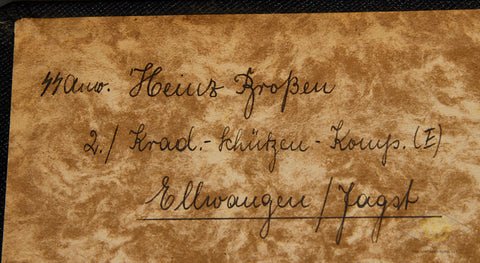 ᛋᛋ Anw. Heinz Großen
2./ Krad.-Schützen-Komp. (E)
Ellwangen/Jagst